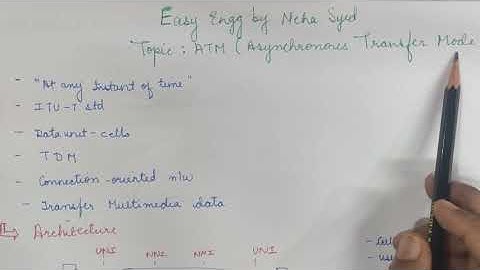 Easy Engg by Neha Syed
Topic : ATM ( Asynchronous Transfer Mode
- "At any instant of time"
- ITU-T std
- Data unit - cells
- TDM
- Connection-oriented n/w
- Transfer Multimedia data
Architecture
UNI NNI NNI UNI